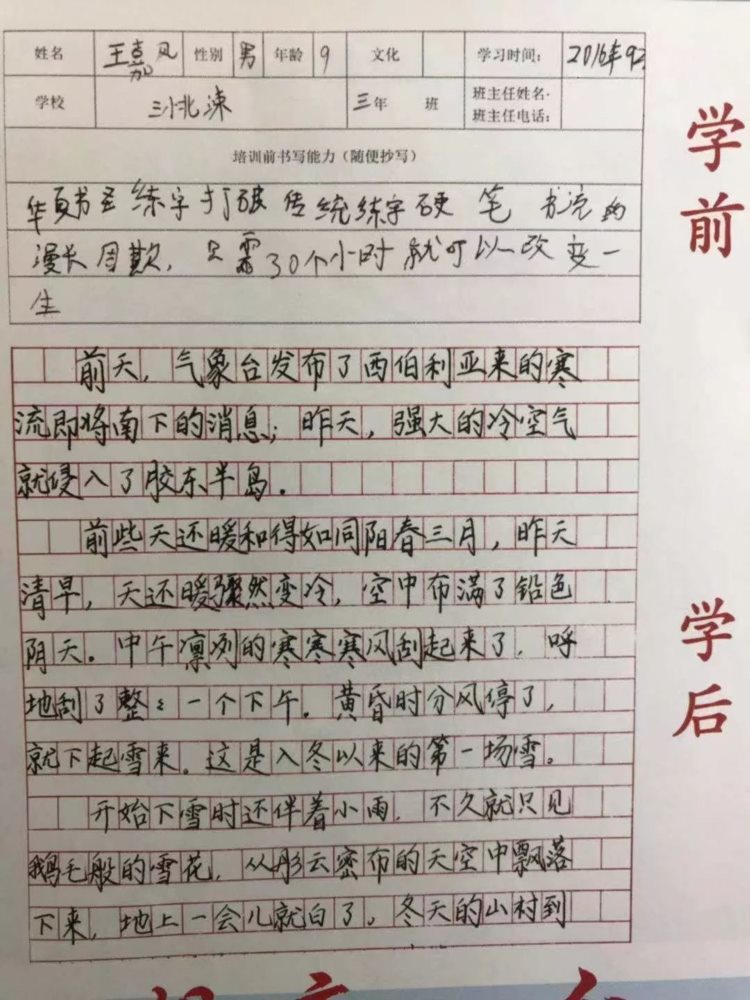 姓名 王嘉凤 性别 男 年龄 9 文化 学习时间： 2016年9
学校 三年 班 班主任姓名·
班主任电话：
培训前书写能力（随便抄写）
华夏书圣练字打破传统练字硬笔书法的
漫长周期，只需30个小时就可以改变一
生
学前
前天，气象台发布了西伯利亚来的寒
流即将南下的消息；昨天，强大的冷空气
就侵入了胶东半岛。
前些天还暖和得如同阳春三月，昨天
清早，天还暖骤然变冷，空中布满了铅色
阴天。中午凛冽的寒寒寒风刮起来了，呼
地刮了整整一个下午。黄昏时分风停了，
就下起雪来。这是入冬以来的第一场雪。
开始下雪时还伴着小雨，不久就只见
鹅毛般的雪花，从彤云密布的天空中飘落
下来，地上一会儿就白了。冬天的山村到
学后